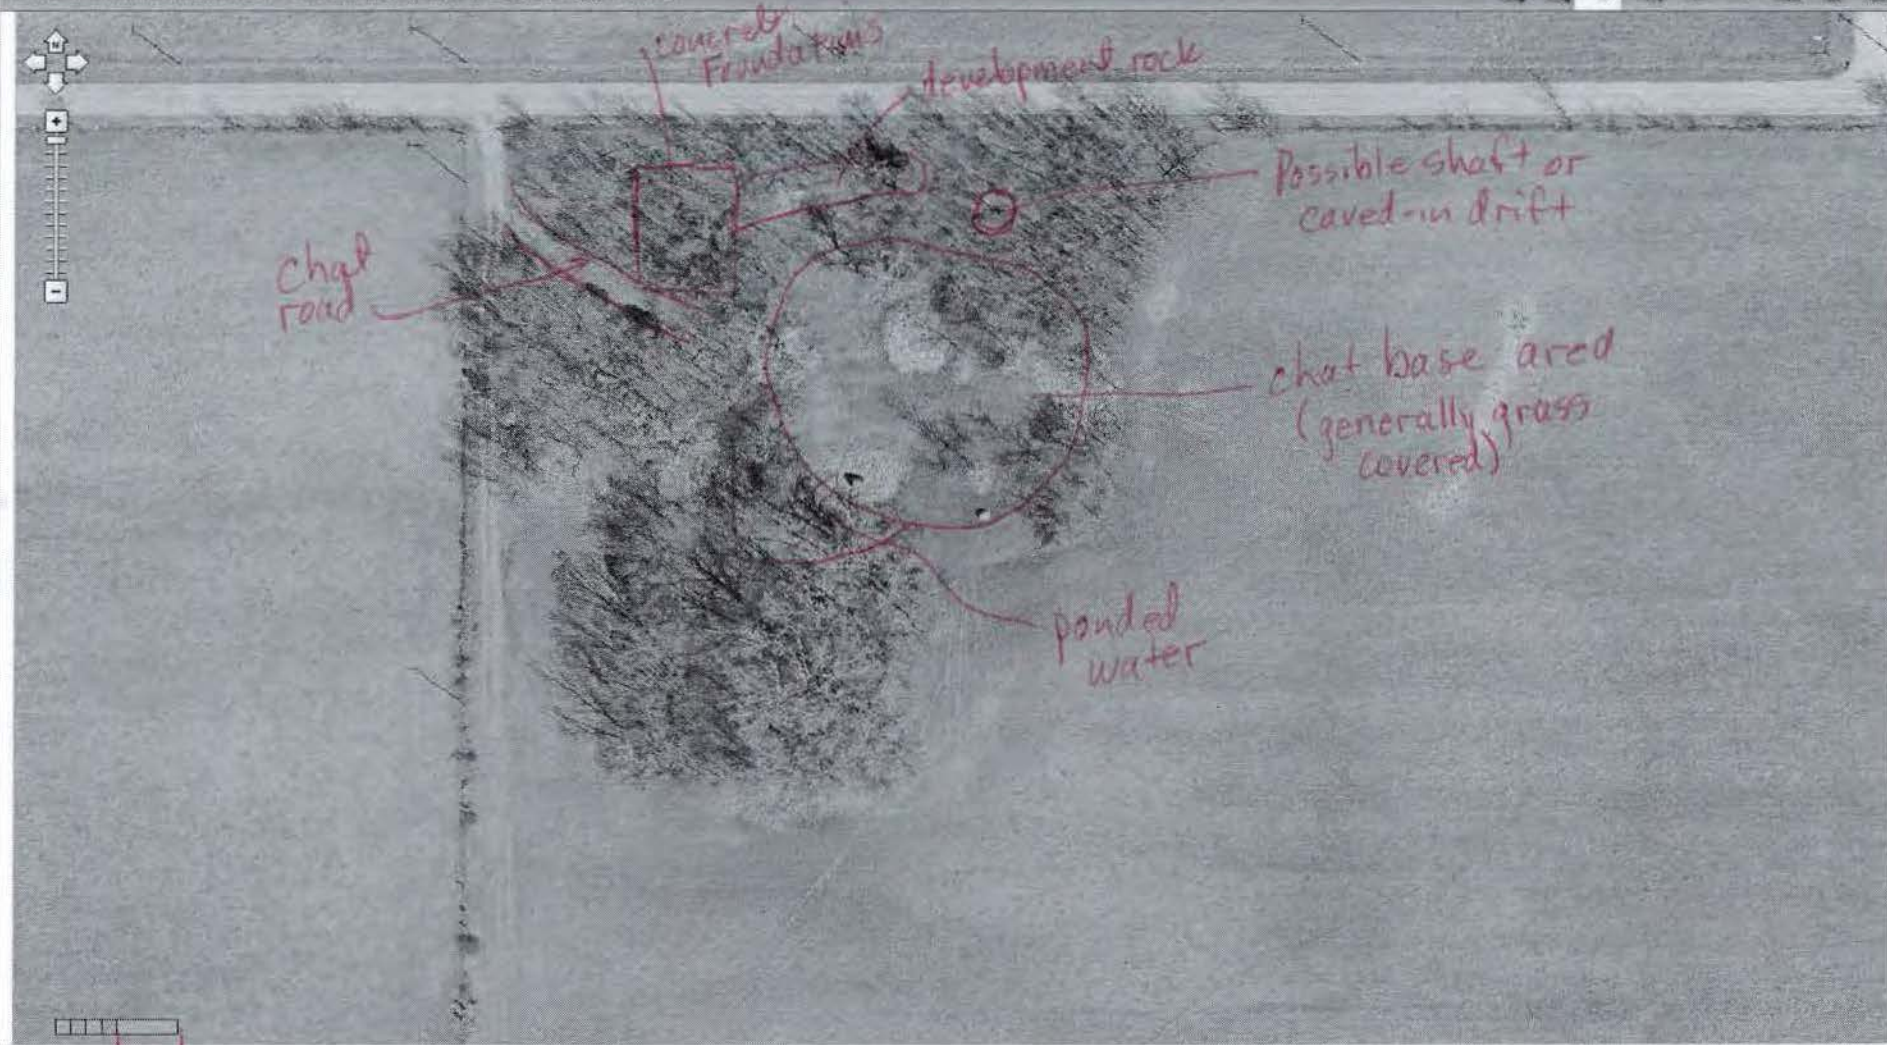 concrete
Foundations
development rock
Possible shaft or
caved-in drift
Chat
road
chat base area
(generally grass
covered)
ponded
water
N
+
-